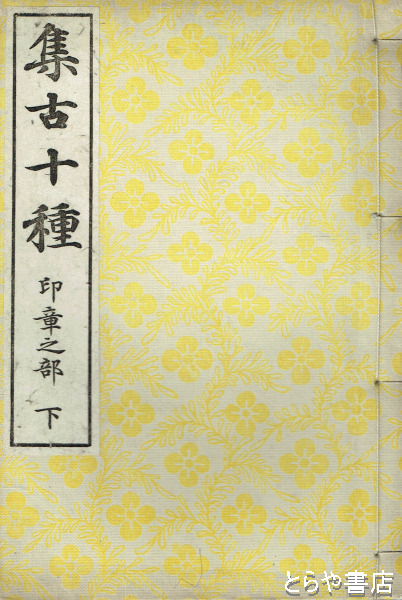 集古十種 印章之部 下
とらや書店